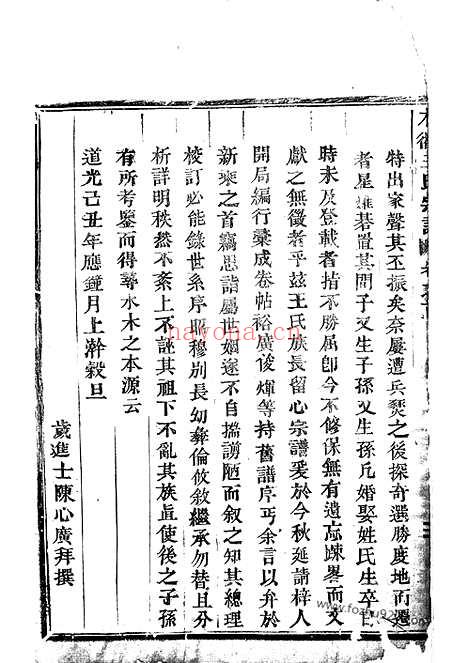 特出家聲其丕振矣奈屢遭兵燹之後探奇選勝度地而遷
者星雄碁置其間子又生子孫又生孫凡婚娶姓氏生卒
時未及登載者指不勝屈卽今不修保無有遺忘踈畧而文
獻之無徵者乎茲王氏族長留心宗譜爰於今秋延請梓人
開局編行彙成卷帖裕廣俊煇等持舊譜序丐余言以弁於
新乘之首竊思誼屬世姻遂不自揣謭陋而叙之知其總理
校訂必能錄世系序昭穆別長幼彝倫攸敘繼承勿替且分
析詳明秩然不紊上不誣其祖下不亂其族眞使後之子孫
有所考鑒而得尋水木之本源云
道光己丑年應鐘月上澣穀旦
歲進士陳心廣拜撰
nayona.cn
www.fozhu920.com